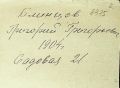 Блинцов
Григорий Григорьевич
1904 г.
Садовая 21